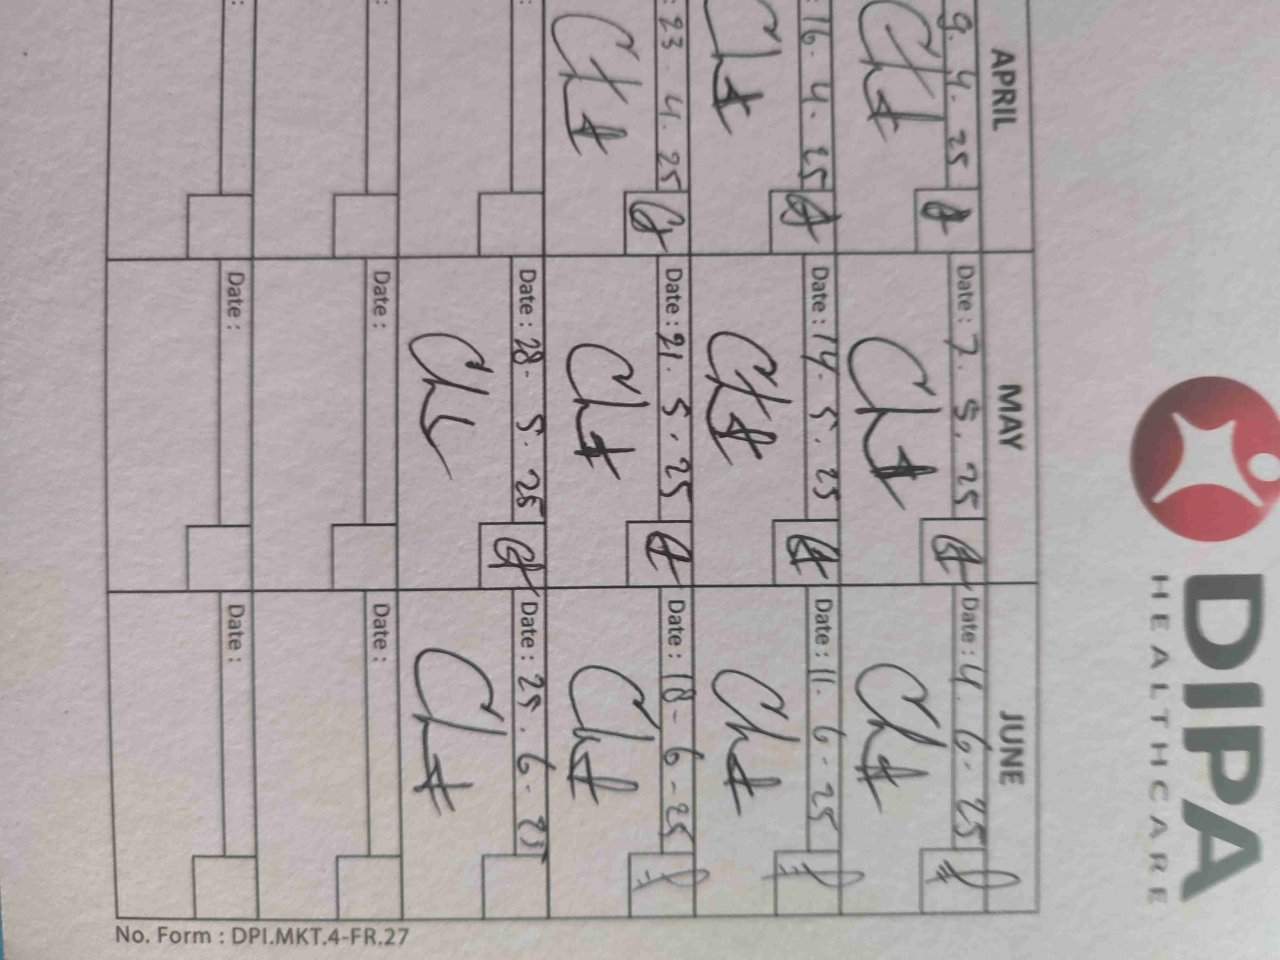 DIPA
HEALTHCARE
APRIL MAY JUNE
9. 4. 25 Date : 7. 5. 25 Date : 4. 6. 25
: 16. 4. 25 Date : 14. 5. 25 Date : 11. 6. 25
: 23. 4. 25 Date : 21. 5. 25 Date : 18 - 6 - 25
: Date : 28. 5. 25 Date : 25. 6. 25
: Date : Date :
: Date : Date :
No. Form : DPI.MKT.4-FR.27